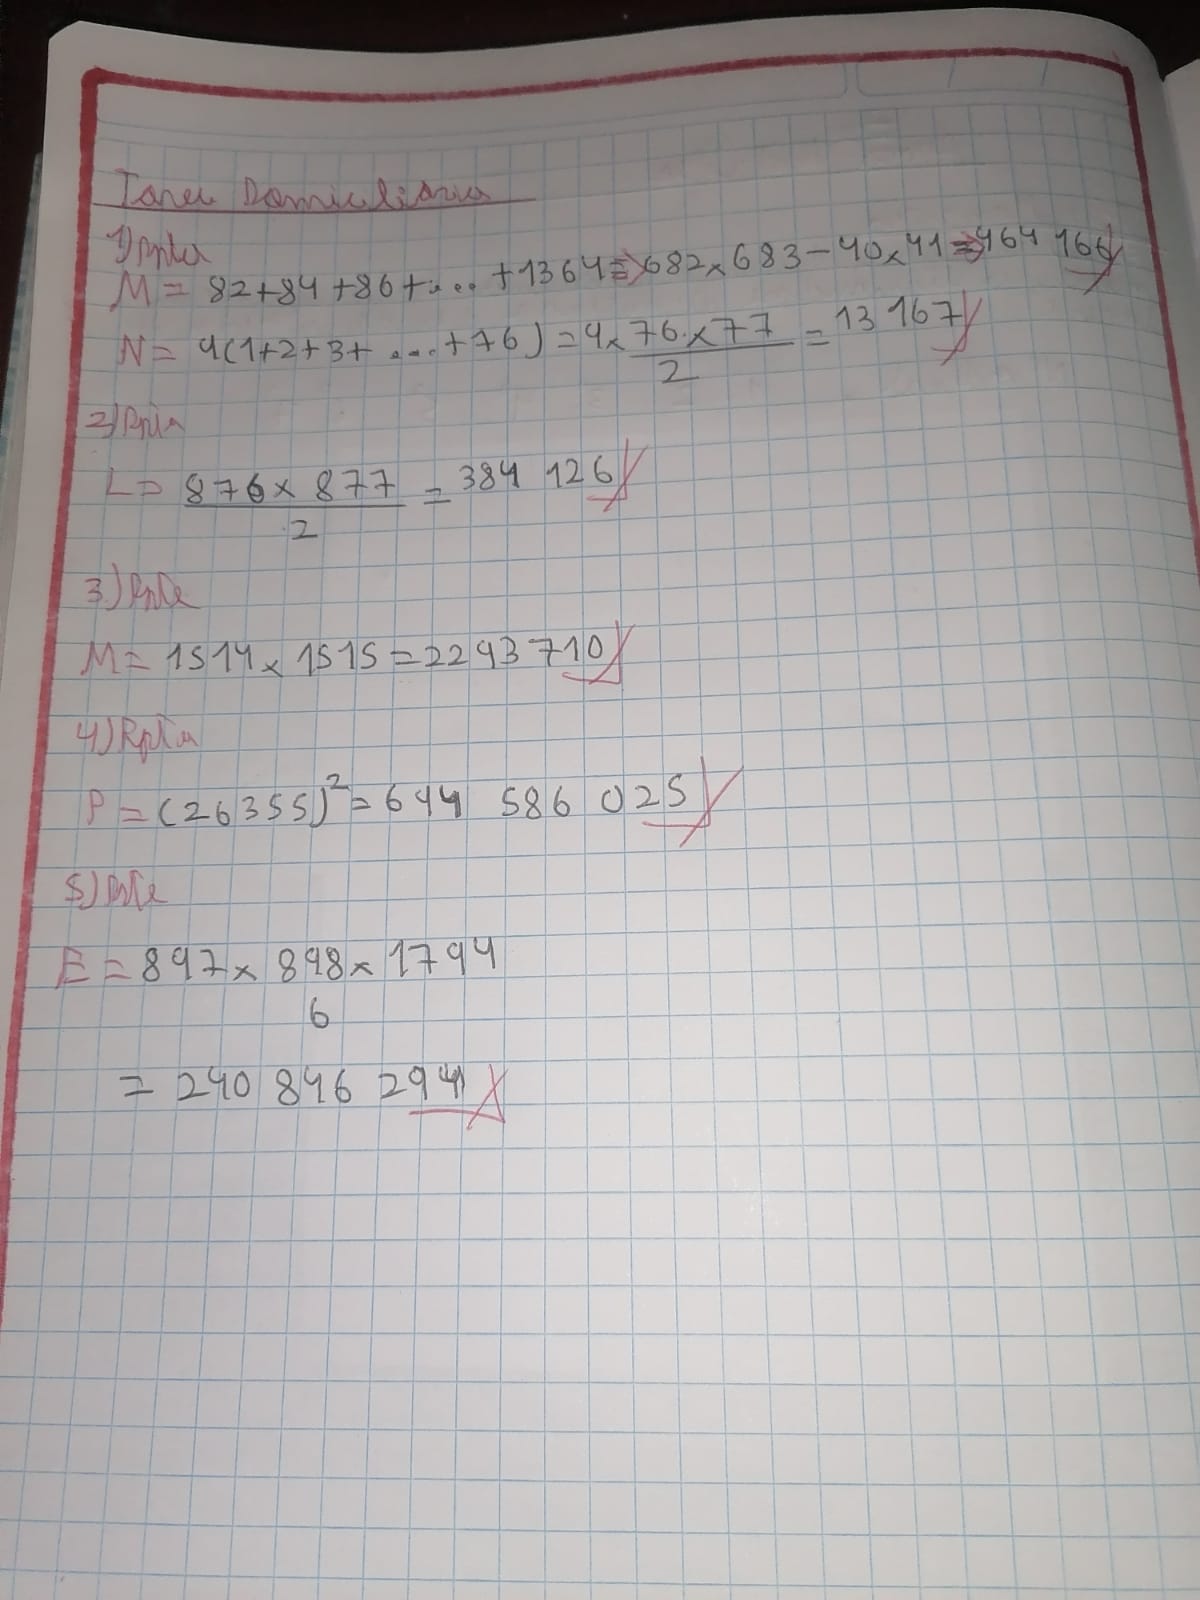 Tarea Domiciliaria
1) Rpta
M = 82+84+86+.... +1364 => 682x683-40x41 => 464 166
N = 4(1+2+3+ .... +76) = 4x 76x77 / 2 = 13 167
2) Rpta
L = 876x877 / 2 = 384 126
3) Rpta
M = 1514x1515 = 2293710
4) Rpta
P = (26355)² = 694 586 025
5) Rpta
E = 897x 898x 1794
6
= 240 846 294